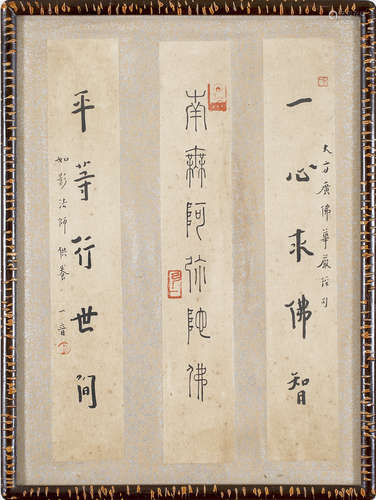 一心求佛智
大方廣佛華嚴經句
南無阿弥陀佛
平等行世间
如影法師供養 一音